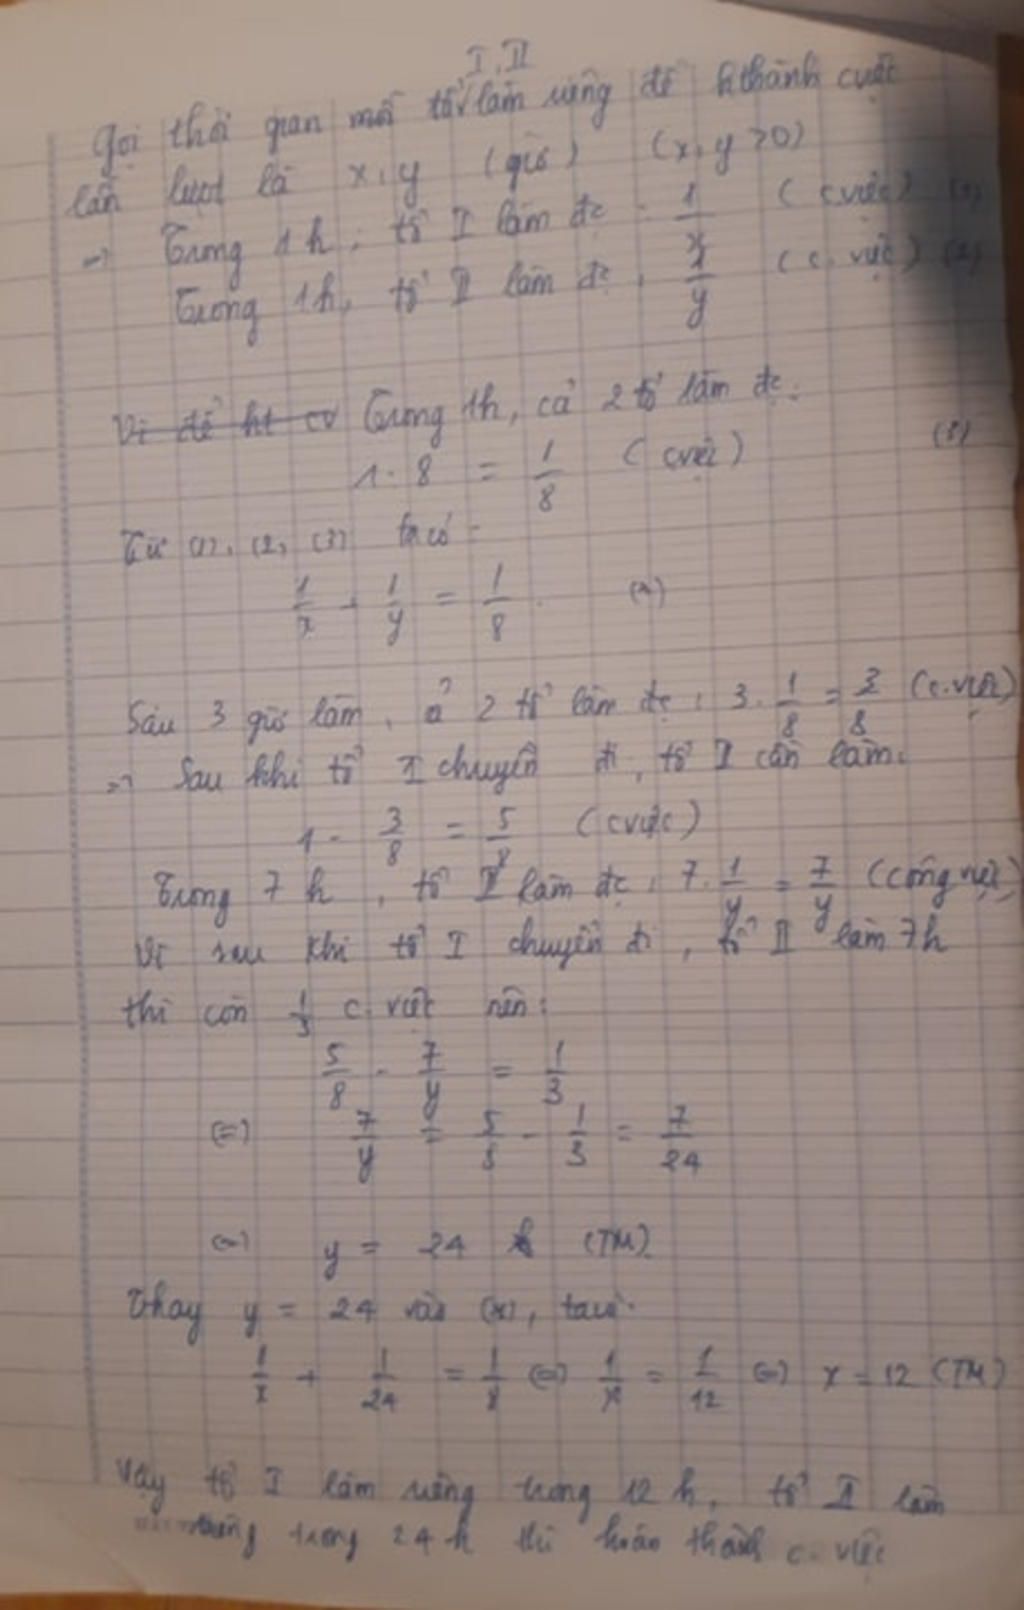 I, II
Gọi thời gian mỗi tổ làm riêng để hthành cviệc
lần lượt là x, y (giờ) (x, y > 0)
=> Trong 1h, tổ I làm đc : 1/x (cviệc) (1)
Trong 1h, tổ II làm đc : 1/y (c. việc) (2)
Vì để ht cv Trong 1h, cả 2 tổ làm đc :
1 : 8 = 1/8 (cviệc) (3)
Từ (1), (2), (3) ta có :
1/x + 1/y = 1/8 (*)
Sau 3 giờ làm, cả 2 tổ làm đc : 3 . 1/8 = 3/8 (c.việc)
=> Sau khi tổ I chuyển đi, tổ II cần làm:
1 - 3/8 = 5/8 (cviệc)
Trong 7 h, tổ II làm đc : 7 . 1/y = 7/y (công việc)
Vì sau khi tổ I chuyển đi, tổ II làm 7h
thì còn 1/3 c. việc nên :
5/8 - 7/y = 1/3
(=) 7/y = 5/8 - 1/3 = 7/24
(=) y = 24 (TM)
Thay y = 24 vào (*), ta có:
1/x + 1/24 = 1/8 (=) 1/x = 1/12 (=) x = 12 (TM)
Vậy tổ I làm riêng trong 12 h, tổ II làm
riêng trong 24 h thì hoàn thành c. việc